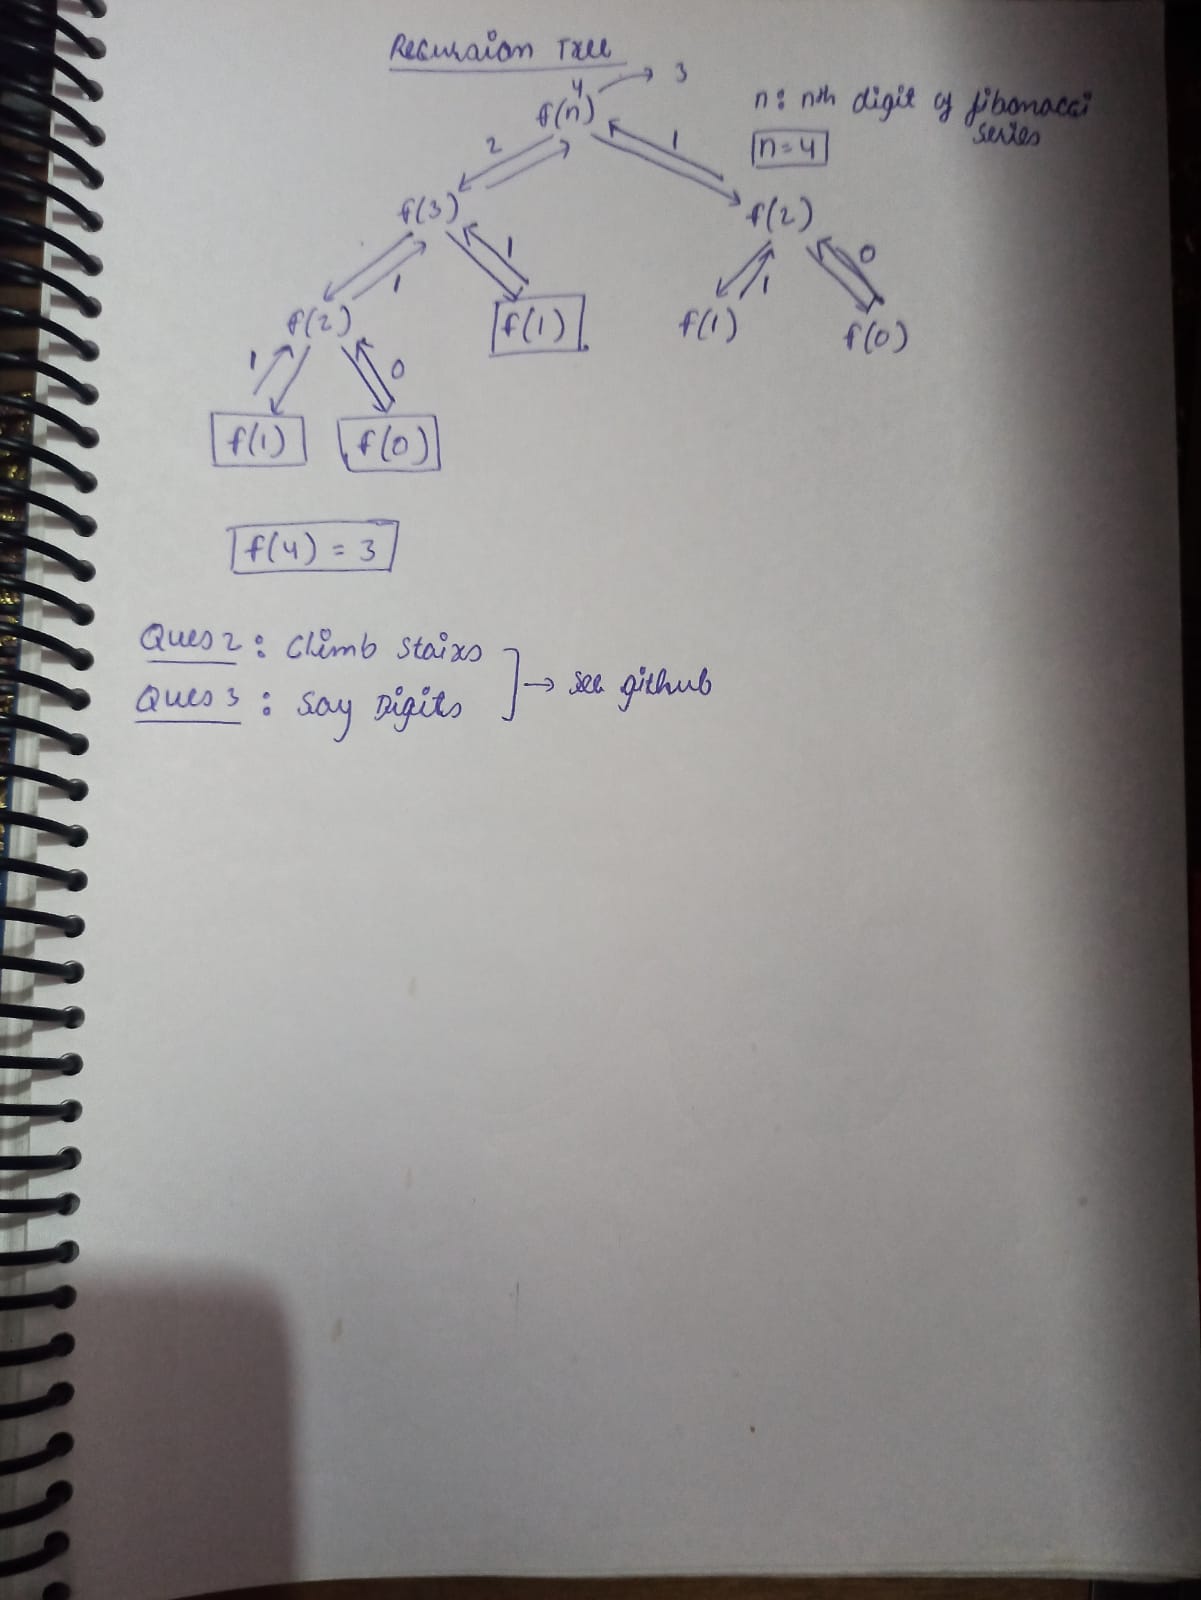 Recursion Tree
4
f(n)
3
n: nth digit of fibonacci
series
n=4
2
1
f(3)
f(2)
1
1
1
0
f(2)
f(1)
f(1)
f(0)
1
0
f(1)
f(0)
f(4) = 3
Ques 2 : Climb Stairs
Ques 3 : Say Digits
→ see github